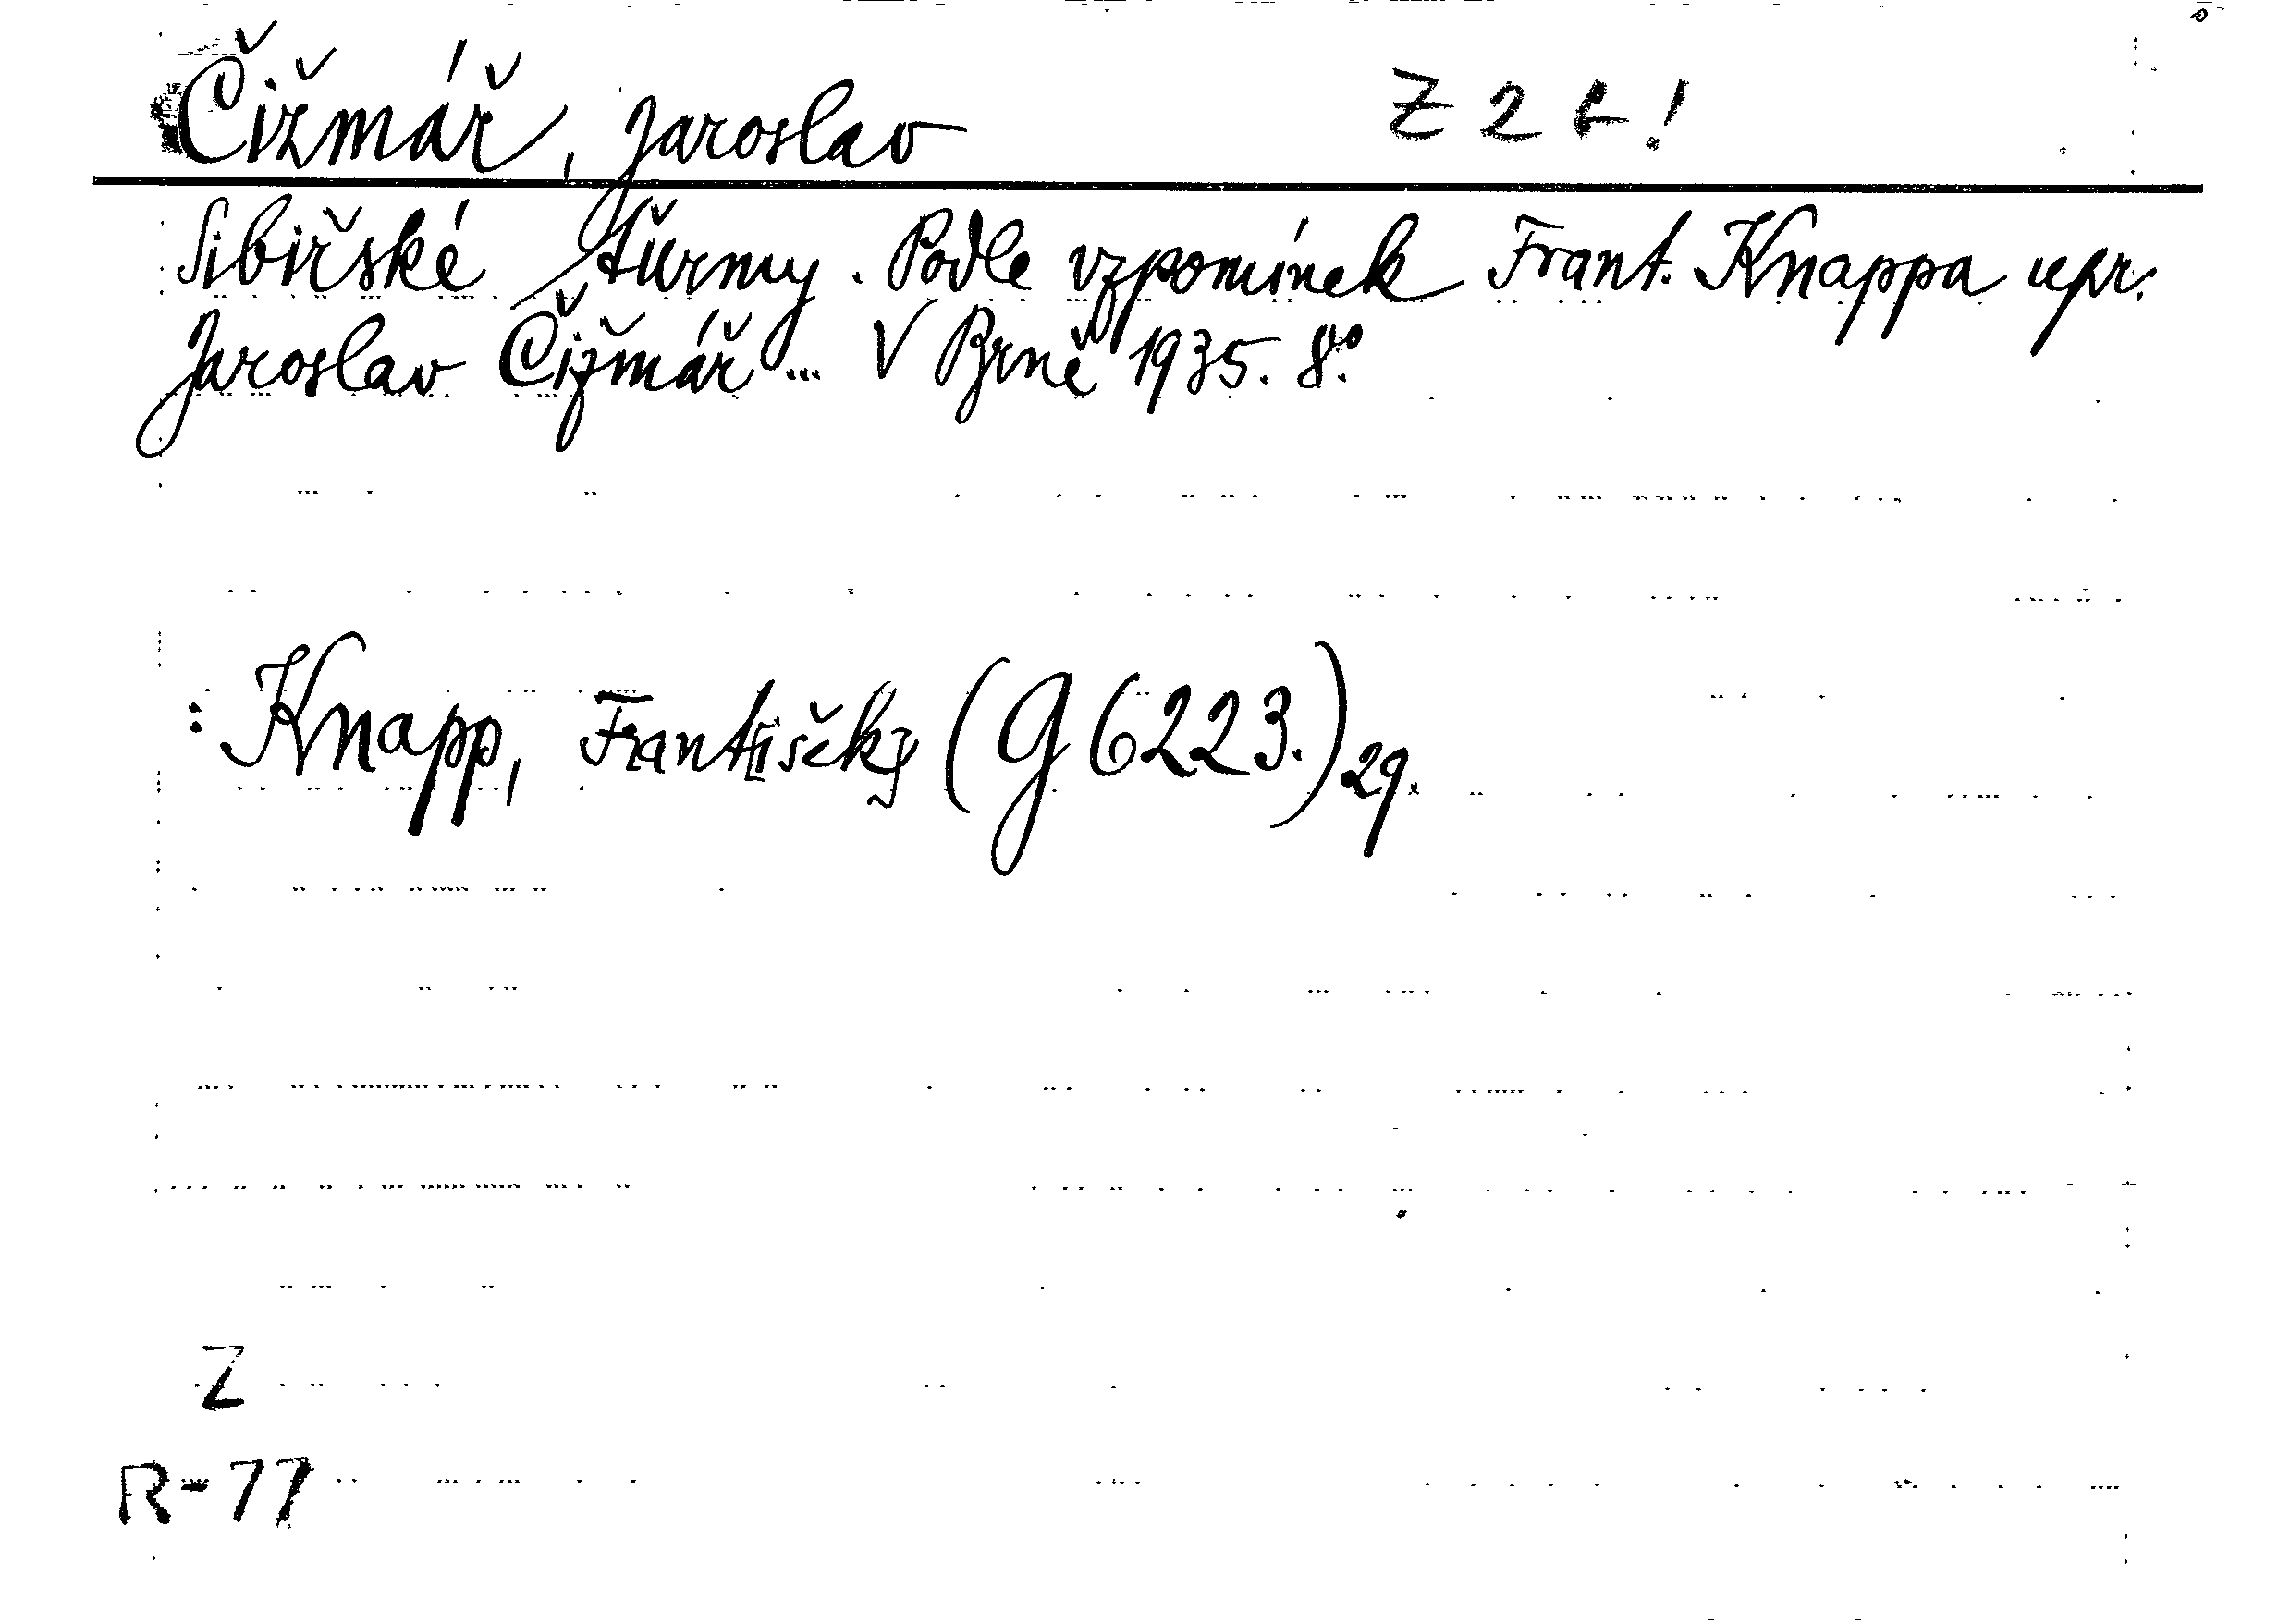 Čižmář, Jaroslav Z 2 t !
Sibiřské šturmy. Podle vzpomínek Frant. Knappa upr.
Jaroslav Čižmář ... V Brně 1935. 8.°
: Knapp, František (G 6223.) 29.
Z
R-77